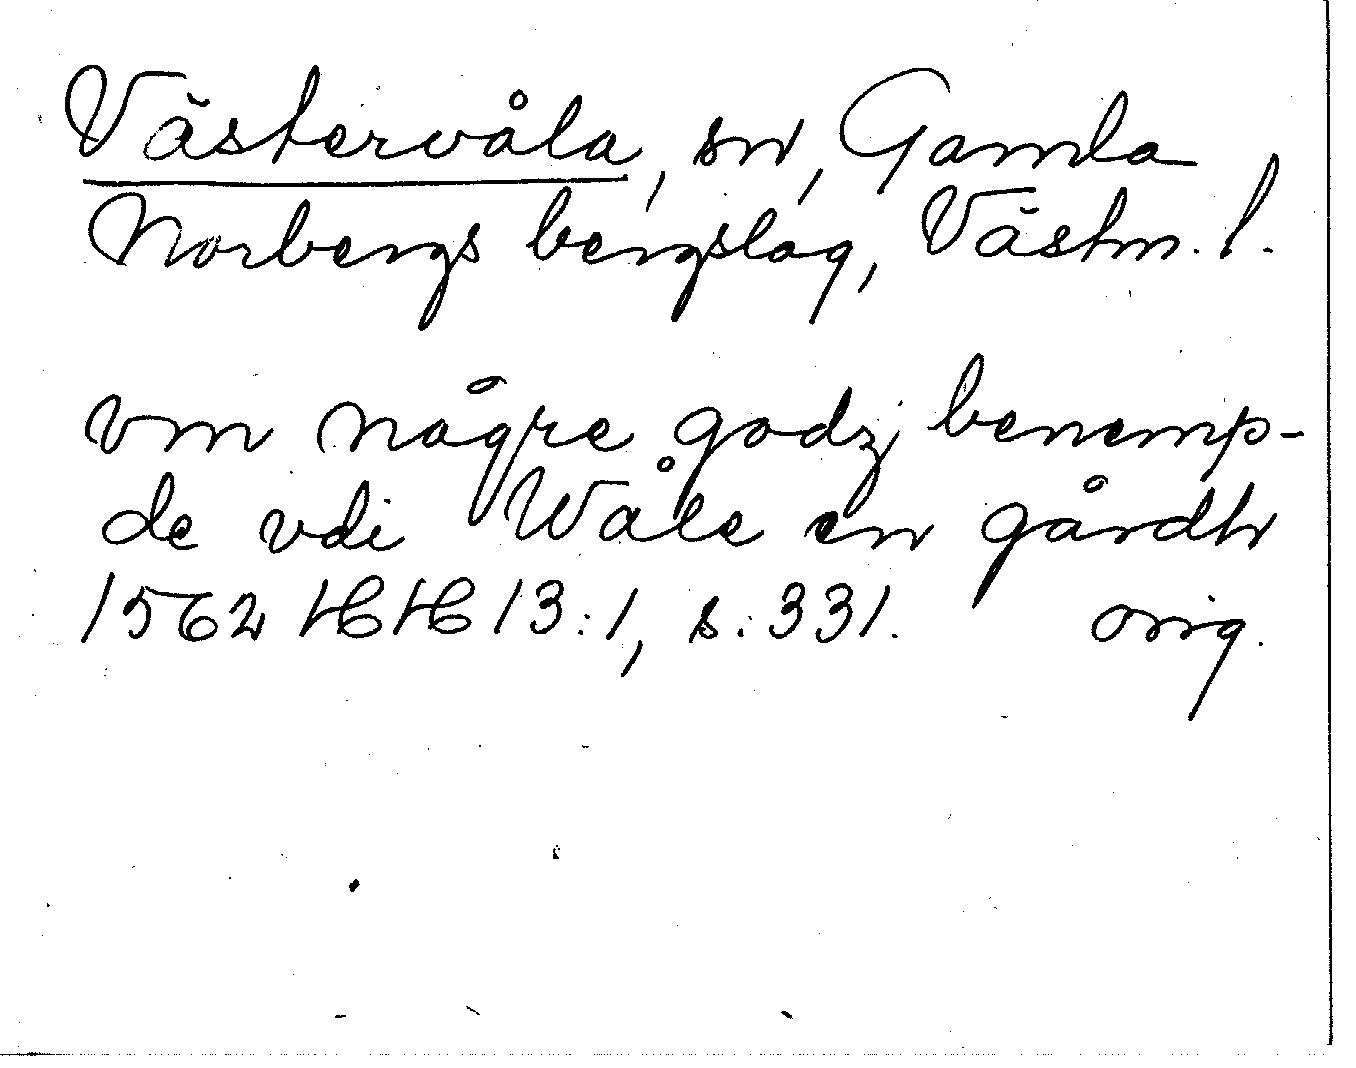 Västervåla, sn, Gamla
Norbergs bergslag, Västm. l.
vm någre godz benemp-
de vdi Wåle en gårdh
1562 HH 13:1, s. 331. orig.